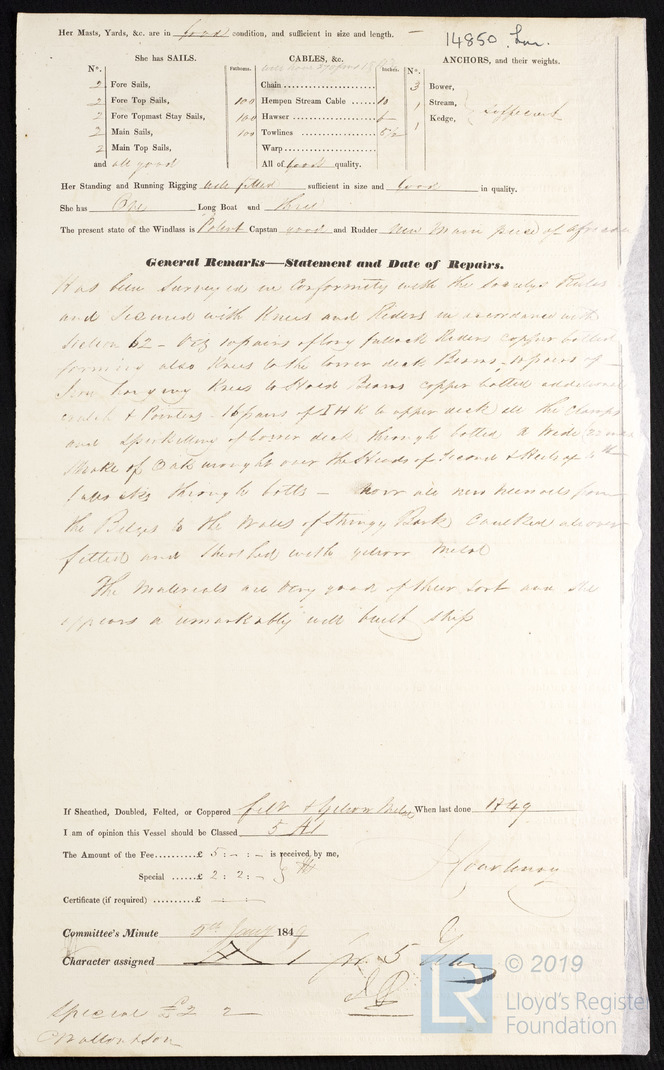 Her Masts, Yards, &c. are in good condition, and sufficient in size and length.
14850 Lon.
She has SAILS.
CABLES, &c.
ANCHORS, and their weights.
No.
Fathoms.
Inches.
No.
2 Fore Sails,
Chain
3 Bower,
2 Fore Top Sails,
100 Hempen Stream Cable 10
1 Stream,
sufficient
2 Fore Topmast Stay Sails,
100 Hawser 6
1 Kedge,
2 Main Sails,
100 Towlines 5½
2 Main Top Sails,
Warp
and all good
All of good quality.
Her Standing and Running Rigging well fitted sufficient in size and Good in quality.
She has One Long Boat and three
The present state of the Windlass is Patent Capstan good and Rudder New Main piece of African
General Remarks—Statement and Date of Repairs.
Has been Surveyed in Conformity with the Societys Rules
and Secured with Knees and Riders in accordance with
Section 62 – Viz 10 pairs of long Riders copper bolted
forming also Knees to the lower deck Beams, pairs of
Iron hanging Knees to Hold Beams copper bolted additional
crutch & Pointers. 16 pairs of I H K to upper deck all the clamps
and Spirketting of lower deck through bolted a
Strake of Oak wrought over the Heads of Second & Heels of
through bolts –
the Bilges to the Wales of Stringy Bark, Caulked allover
felted and Sheathed with yellow Metal
The Materials are Very good of their Sort and She
appears a remarkably well built ship
If Sheathed, Doubled, Felted, or Coppered Felt & Yellow Metal When last done 1849
I am of opinion this Vessel should be Classed 5 A1
The Amount of the Fee £ 5 : – : – is received by me,
Special £ 2 : 2 : –
Certificate (if required) £ – –
Committee's Minute 5th Jany 1849
Character assigned A 1 for 5 Years
Special £2 2
© 2019
LR
Lloyd's Register
Foundation